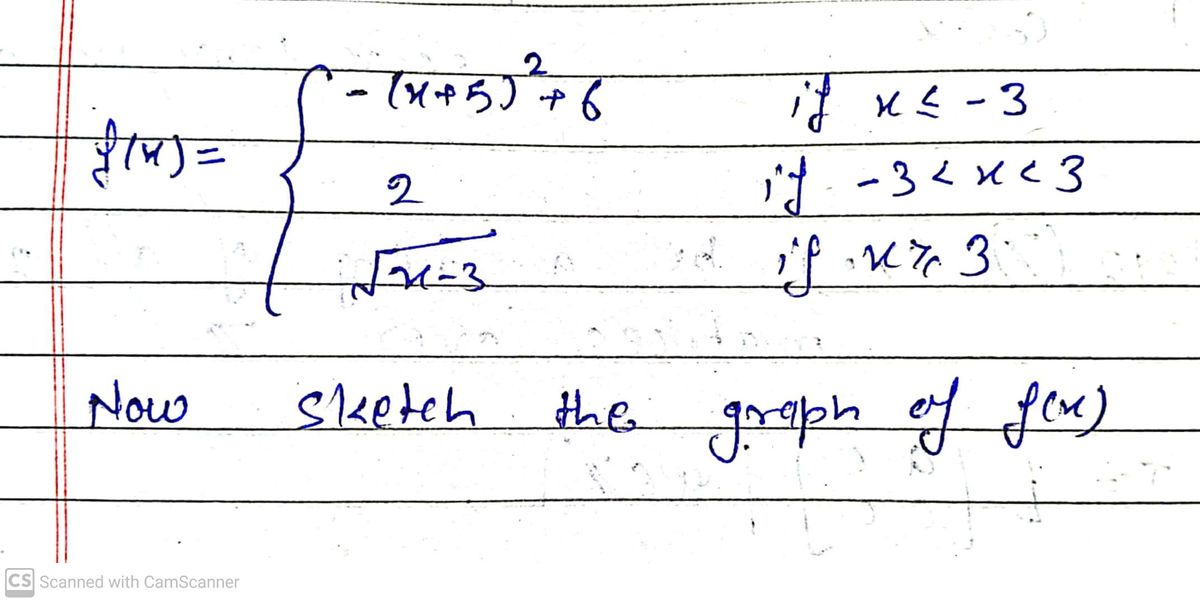 f(x) = { -(x+5)² + 6 if x ≤ -3
2 if -3 < x < 3
√x-3 if x ≥ 3
Now sketch the graph of f(x)
CS Scanned with CamScanner